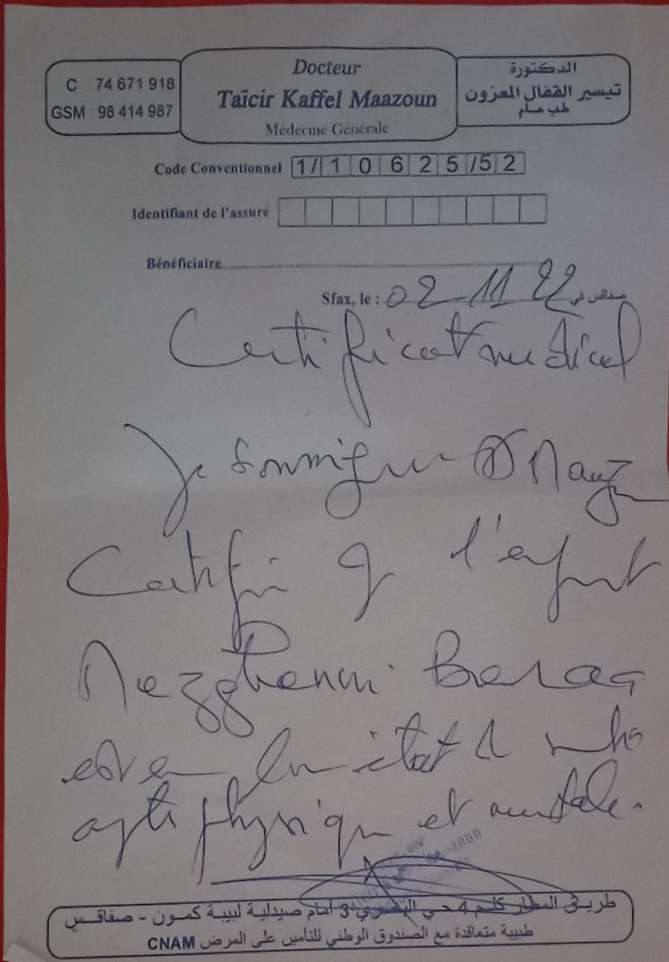 Docteur
Taïcir Kaffel Maazoun
Médecine Générale
C : 74 671 918
GSM : 98 414 987
الدكتورة
تيسير القفال المعزون
طب عام
Code Conventionnel 1/10625/52
Identifiant de l'assuré
Bénéficiaire
Sfax, le : 02-11 22 صفاقس في
Certificat medical
Je soussigne Dr Maaz
Certifie q l'enfant
Mezghenni
est en bon état d
apte physique et mentale.
طريق المطار كلم 4 حي البصري 3 أمام صيدلية لبيبة كمون - صفاقس
طبيبة متعاقدة مع الصندوق الوطني للتأمين على المرض CNAM